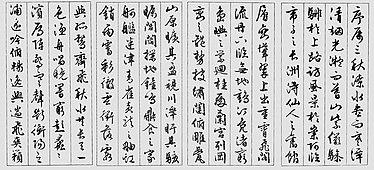 序屬三秋潦水盡而寒潭
清煙光凝而暮山紫儼驂
騑於上路訪風景於崇阿臨
帝子之長洲得仙人之舊館
層巒聳翠上出重霄飛閣
流丹下臨無地鶴汀鳧渚窮
島嶼之縈迴桂殿蘭宮列岡
巒之體勢披繡闥俯雕甍
山原曠其盈視川澤盱其駭
矚閭閻撲地鐘鳴鼎食之家
舸艦迷津青雀黃龍之軸虹
銷雨霽彩徹雲衢落霞
與孤鶩齊飛秋水共長天一
色漁舟唱晚響窮彭蠡之
濱雁陣驚寒聲斷衡陽之
浦遙吟俯暢逸興遄飛爽籟